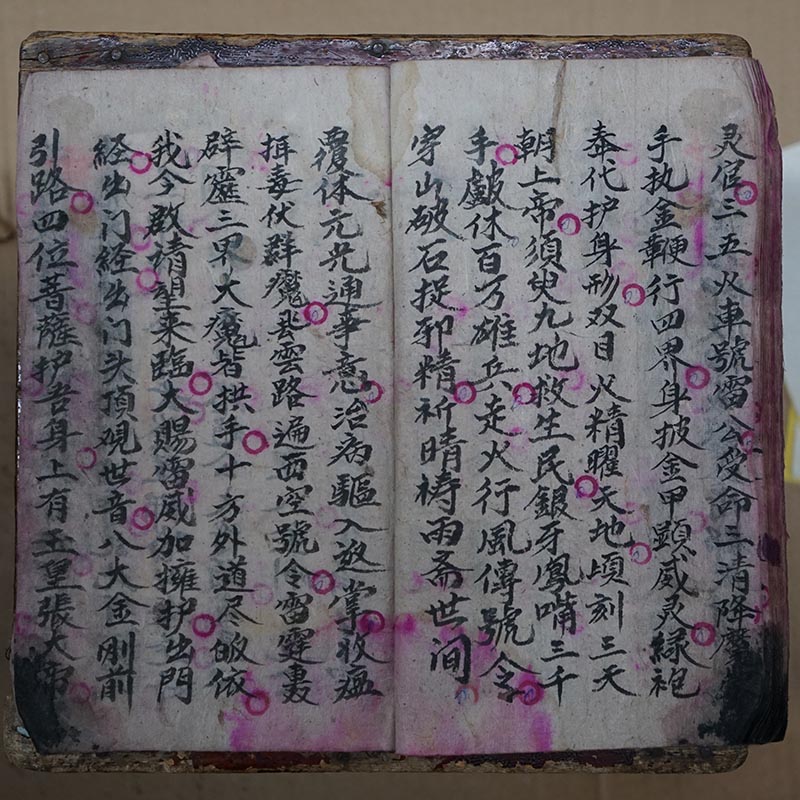 灵官三五火車號雷公受命三清降魔
手执金鞭行四界身披金甲顕威灵緑袍
奉代护身形双目火精曜天地頃刻三天
朝上帝須臾九地救生民銀牙鳳嘴三千
手䶈休百万雄兵走火行風傳號令
穿山破石捉邪精祈晴祷雨斋世间
覆体元光通事意治病驅入遊掌收瘟
揖毒伏群魔飛雲路遍西空號令雷霆裏
辟靈三界大魔皆拱手十方外道尽皈依
我今啟请望来臨大賜雷威加擁护出門
経出门経出门头頂覌世音八大金刚前
引路四位菩薩护吾身上有玉皇張大帝